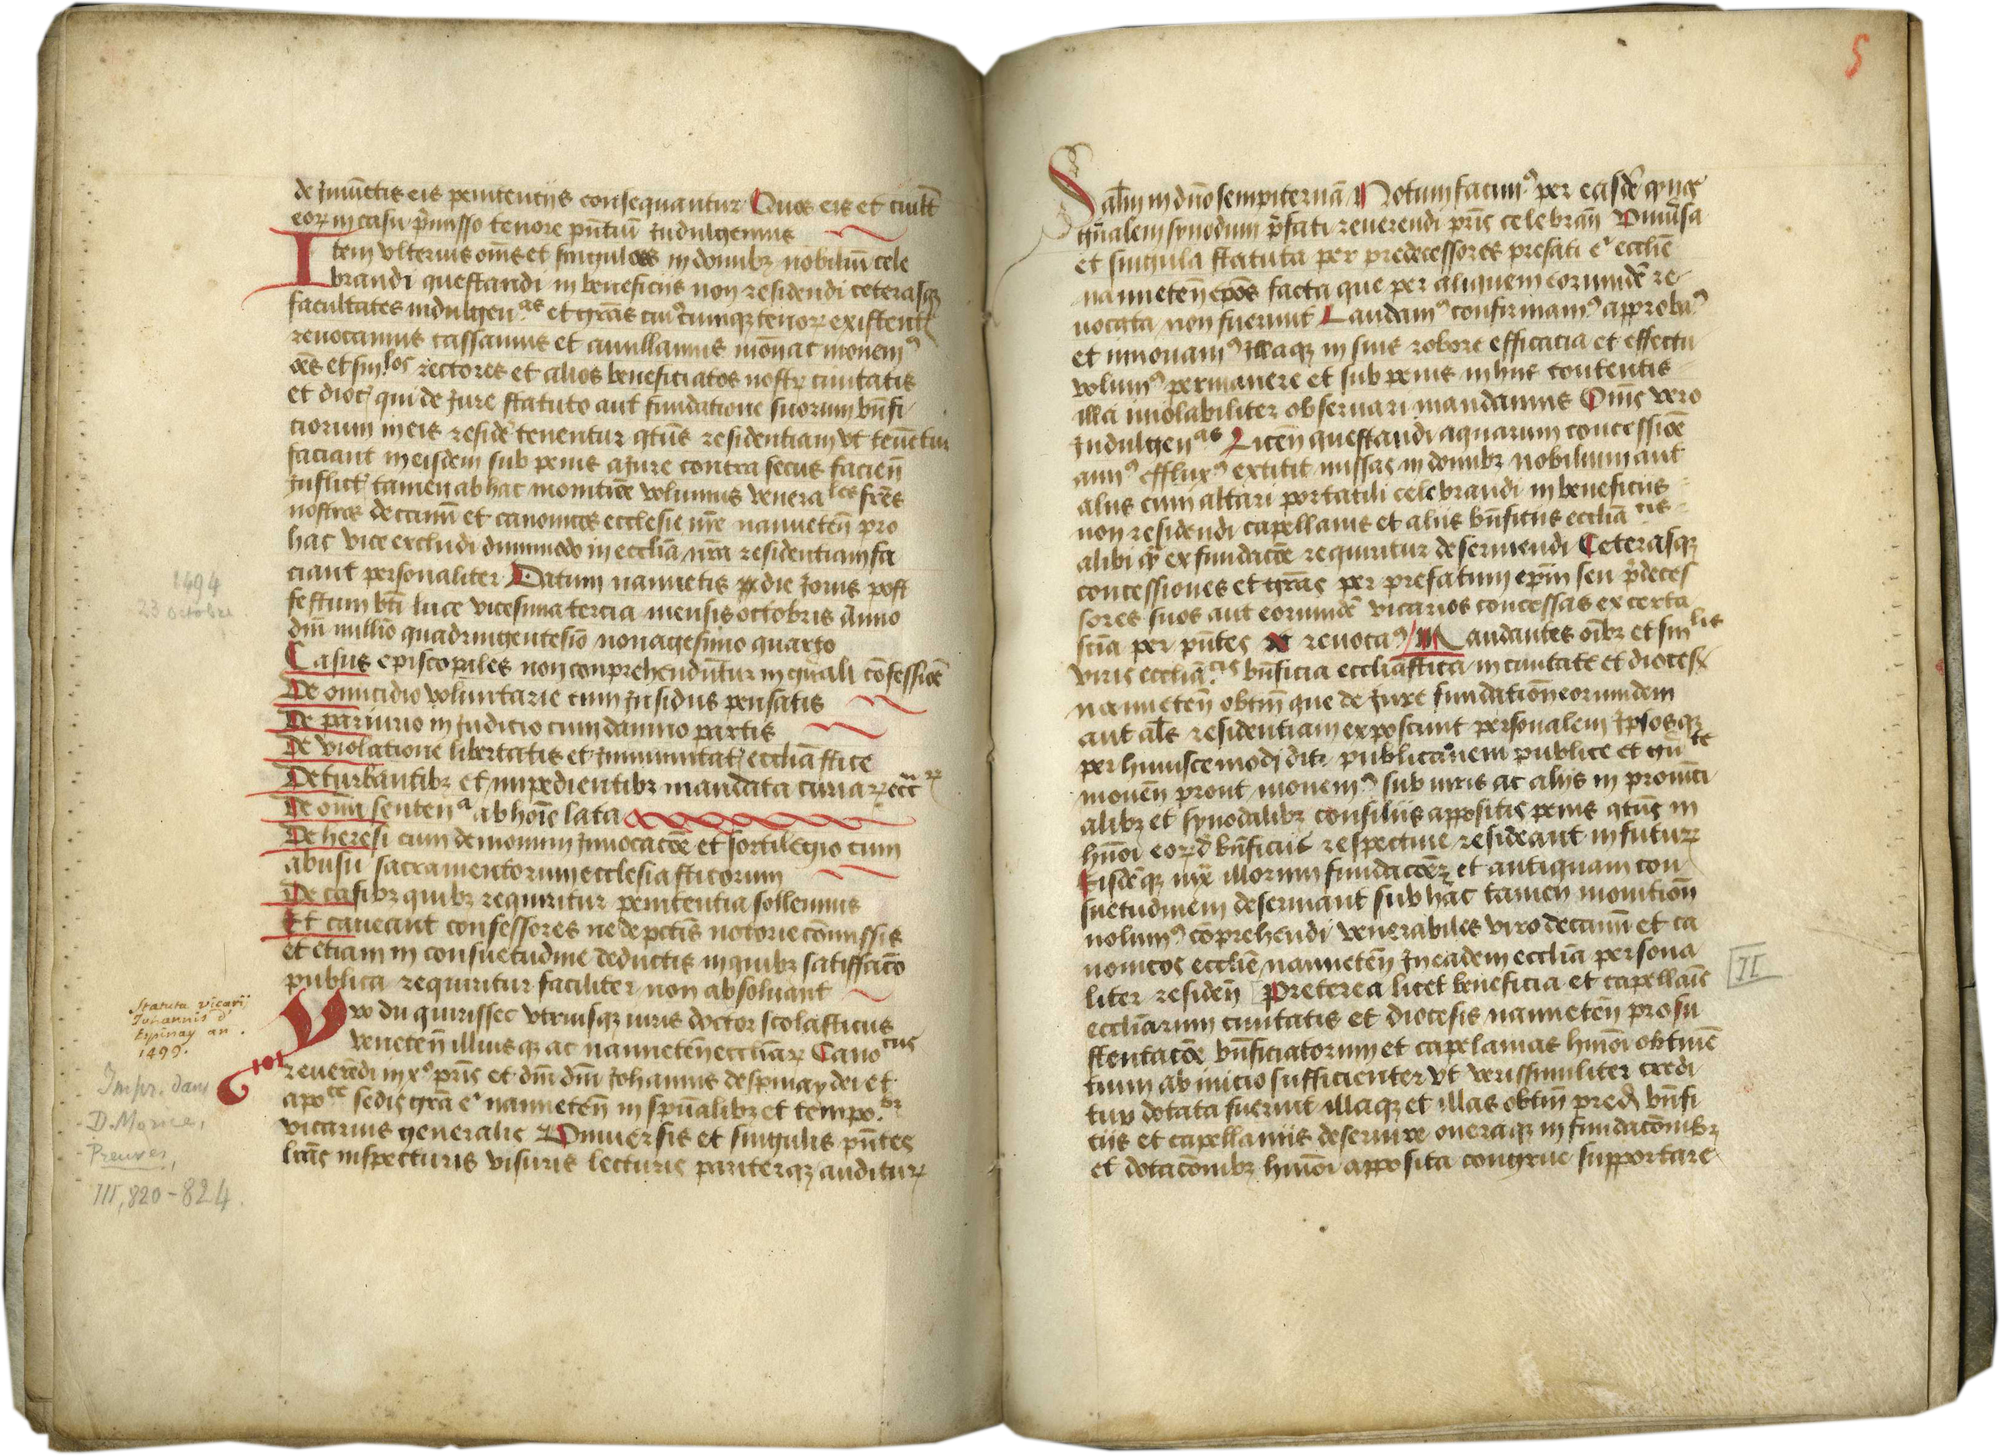 de Iniūctis eis penitentijs consequantur Quos eis et cuilt̄
eoꝝ in casu p̄misso tenore pn̄tiū Indulgemus
Item vlterius om̄s et singulas in domibꝫ nobiliū cele
brandi questandi in beneficijs non residendi ceterasqꝫ
facultates indulgen.as et gr̄as cuiꝰcumqꝫ tenoꝝ existent
reuocamus cassamus et anullamus mōnac monemꝰ
oēs et sin.los rectores et alios beneficiatos nostꝝ ciuitatis
et dioc̄ qui de Jure statuto aut fundatione suorum bn̄fi
ciorum in eis residē tenentur qtūs residentiam vt tenētur
faciant in eisdem sub penis a Jure contra secus facien̄
Inflict̄ tamen ab hac monitiōe volumus venera les frēs
nostros decanū et canonicos ecclesie nr̄e nanneten̄ pro
hac vice excludi dummodo in ecclīa nr̄a residentiam fa
ciant personaliter Datum nannetis die Jouis post
festum bt̄i luce vicesima tercia mensis octobris Anno
dn̄i millīo quadringentesīo nonagesimo quarto
Casus episcopales non conprehendūtur in gn̄ali cōfessiōe
De omicidio volūntarie cum Insidijs pensatis
De pariurio in Judicio cum damno partis
De violatione libertatis et Immunitat̄ ecclīastice
De turbantibꝫ et impedientibꝫ mandata curiaꝝ ecc̄ rꝝ
De omī senten.a ab hoīe lata
De heresi cum demonum Inuocacōe et sortilegio cum
abusu sacramentorum ecclesiasticorum
De casibꝫ quibꝫ requiritur penitentia sollemnis
Et caueant confessores ne de pctīs notorie cōmissis
et etiam in consuetudine deductis in quibꝫ satisfacō
publica requiritur faciliter non absoluant
Yvo du quirissec vtriusqꝫ iuris doctor scolasticus
veneten̄ illiusqꝫ ac nanneten̄ ecclīaꝝ Cano cus
reuerēdi in xꝰ pr̄is et dn̄i dn̄i Johannis despinay dei et
apo.ce sedis gr̄a eꝰ nanneten̄ in spūalibꝫ et tempo.bꝫ
vicarius generalis Vniuersis et singulis pn̄tes
lrās inspecturis visuris lecturis pariterqꝫ audituꝝ
1494
23 octobre
Statuta vicarij
Johannis d'
Espinay an.
1499.
Impr. dans
D. Morice,
Preuves,
III, 820-824.
5
Salt̄m in dn̄o sempiternā Notum facimꝰ per easdē qꝫ
gn̄alem synodum p̄fati reuerendi pr̄is celebran̄ Omīa
et singula statuta per predecessores prefati eꝰ ecclīe
nanneten̄ epos facta que per aliquem eorumdē re-
uocata non fuerint Laudamꝰ confirmamꝰ approbaꝰ
et innouamꝰ Illaqꝫ in suis robore efficacia et effectu
volumꝰ permanere et sub penis in hiis contentis
illa inuolabiliter obseruari mandamus Om̄s vero
Indulgen.as Licen̄ questandi aquarum concessiōe
annꝰ effluxꝰ extitit missas in domibꝫ nobilium aut
alijs cum altari portatili celebrandi in beneficijs
non residendi capellanis et alijs bn̄ficijs ecclīa tis
alibi qꝫ ex fundacōe requiritur deseruiendi Ceterasqꝫ
concessiones et gr̄as per prefatum epm̄ seu p̄deces
sores suos aut eorumdē vicarios concessas ex certa
scīa per pn̄tes reuocaꝰ Mandantes oībꝫ et sin.lis
viris ecclīa.cis bn̄ficia ecclīastica in ciuitate et dioces̄
nanneten̄ obtin̄ que de Jure fundatiōn eorumdem
aut als̄ residentiam exposcunt personalem Ipsosqꝫ
per huiuscemodi publicacōnem publice et gn̄ te
monen̄ prout monemꝰ sub iuris ac alijs in prouīci
alibꝫ et synodalibꝫ consilijs appositis penis qtūs in
hmōi eoꝝd̄ bn̄ficijs respectiue resideant in futuꝝ
Eisdēqꝫ iux̄ illorum fundacōeꝫ et antiquam con
suetudinem deseruiant sub hac tamen monition̄
nolumꝰ cōprehendi venerabiles viros decanū et ca
nonicos ecclīe nanneten̄ In eadem ecclīa persona
liter residen̄ Preterea licet beneficia et capellaīe
ecclīarum ciuitatis et diocesis nanneten̄ pro su
stentacōe bn̄ficiatorum et capelanias hmōi obtinē
tium ab inicio sufficienter vt verissimiliter credi
tur dotata fuerint illaqꝫ et illas obtin̄ pred̄ bn̄fi
cijs et capellanijs deseruire oneraqꝫ in fundacōnibꝫ
et dotacōnibꝫ hmōi apposita congrue supportare
II